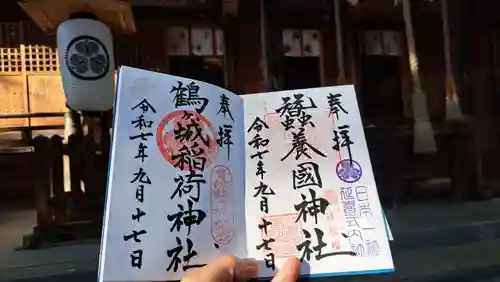 奉拝
蚕養國神社
令和七年九月十七日
日本一社
延喜式内
奉拝
鶴ヶ城稲荷神社
令和七年九月十七日